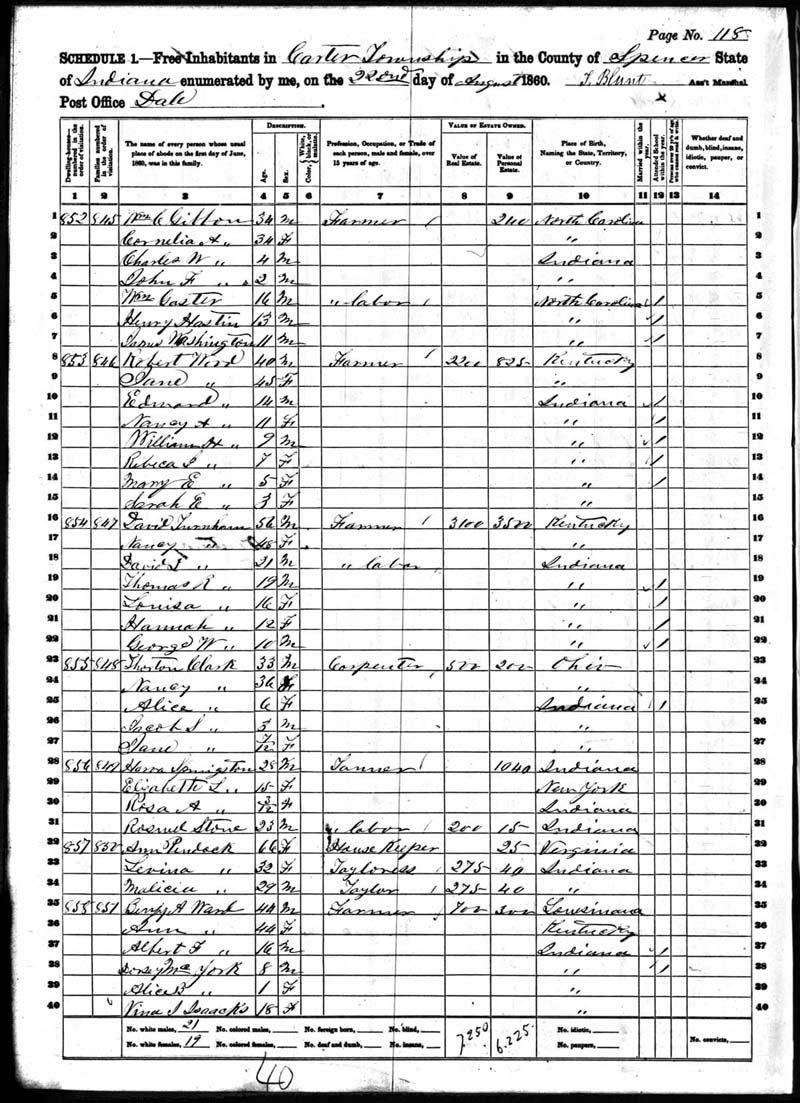 Page No. 118
SCHEDULE 1.—Free Inhabitants in Carter Township in the County of Spencer State
of Indiana enumerated by me, on the 22nd day of August 1860. T. Blunt Ass't Marshal.
Post Office Dale
Dwelling-houses— numbered in the order of visitation.
Families numbered in the order of visitation.
The name of every person whose usual place of abode on the first day of June, 1860, was in this family.
DESCRIPTION.
Age.
Sex.
Color, White, black, or mulatto.
Profession, Occupation, or Trade of each person, male and female, over 15 years of age.
VALUE OF ESTATE OWNED.
Value of Real Estate.
Value of Personal Estate.
Place of Birth, Naming the State, Territory, or Country.
Married within the year.
Attended School within the year.
Whether deaf and dumb, blind, insane, idiotic, pauper, or convict.
1 2 3 4 5 6 7 8 9 10 11 12 13 14
1 852 845 Wm C 34 M Farmer / 240 North Carolina 1
2 Cornelia A " 34 F " 2
3 Charles W " 4 M Indiana 3
4 John F " 2 M " 4
5 Wm Caster 16 M " labor / North Carolina / 5
6 Henry Hastin 13 M " / 6
7 James Washington 11 M " / 7
8 853 846 Robert Word 40 M Farmer / 2200 825 Kentucky 8
9 Jane " 45 F " 9
10 Edmond " 14 M Indiana / 10
11 Nancy A " 11 F " / 11
12 William H " 9 M " / 12
13 Rebeca " 7 F " / 13
14 Mary E " 5 F " / 14
15 Sarah E " 3 F " 15
16 854 847 David Turnham 56 M Farmer / 3100 3500 Kentucky 16
17 Nancy " 48 F " 17
18 David " 21 M " labor Indiana 18
19 Thomas R " 19 M " / 19
20 Louisa " 16 F " / 20
21 Hannah " 12 F " / 21
22 George W " 10 M " / 22
23 855 848 Thorton Clark 33 M Carpenter / 500 200 Ohio 23
24 Nancy " 36 F " 24
25 Alice " 6 F Indiana / 25
26 Jacob S " 3 M " 26
27 Jane " F " 27
28 856 849 Springston 28 M Tanner / 1040 Indiana 28
29 Elizabeth L " 15 F New York 29
30 Rosa A " F Indiana 30
31 Stone 23 M " labor / 200 15 Indiana 31
32 857 850 Ann 66 F House Keeper 25 Virginia 32
33 Levina " 32 F Tayloress / 275 40 Indiana 33
34 Malicia " 29 M Taylor / 275 40 " 34
35 858 851 Benj A Ward 44 M Farmer / 700 300 Louisinana 35
36 Ann " 44 F Kentucky 36
37 Albert F " 16 M Indiana / 37
38 York 8 M " / 38
39 Alice B " 1 F " 39
40 Isaacks 18 F " 40
No. white males, 21 No. colored males, No. foreign born, No. blind, 7250 6.225 No. idiotic,
No. white females, 19 No. colored females, No. deaf and dumb, No. insane, No. paupers, No. convicts,
40